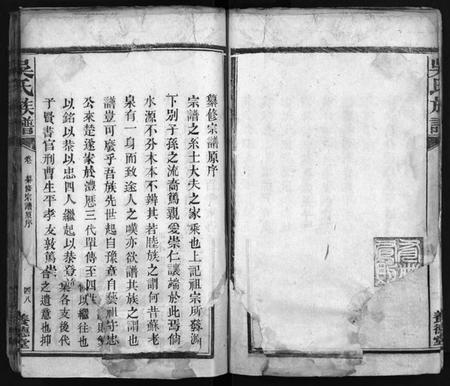 吳氏族譜
纂修宗譜原序
宗譜之系士大夫之家乘也上記祖宗所發源
下別子孫之流裔篤親愛崇仁讓端於此焉倘
水源不分木本不辨其若睦族之謂何昔蘇老
泉有一身而致途人之嘆亦欲譜其族之謂也
譜豈可廢乎吾族先世起自豫章自藝祖守忠
公來楚遂家於澧歷三代單傳至四
以銘以恭以忠四人繼起以恭登 某各支後代
子賢書官刑曹生平孝友敦篤 者之遺意也抑
吳氏族譜
卷
纂修宗譜原序
四八
善德堂